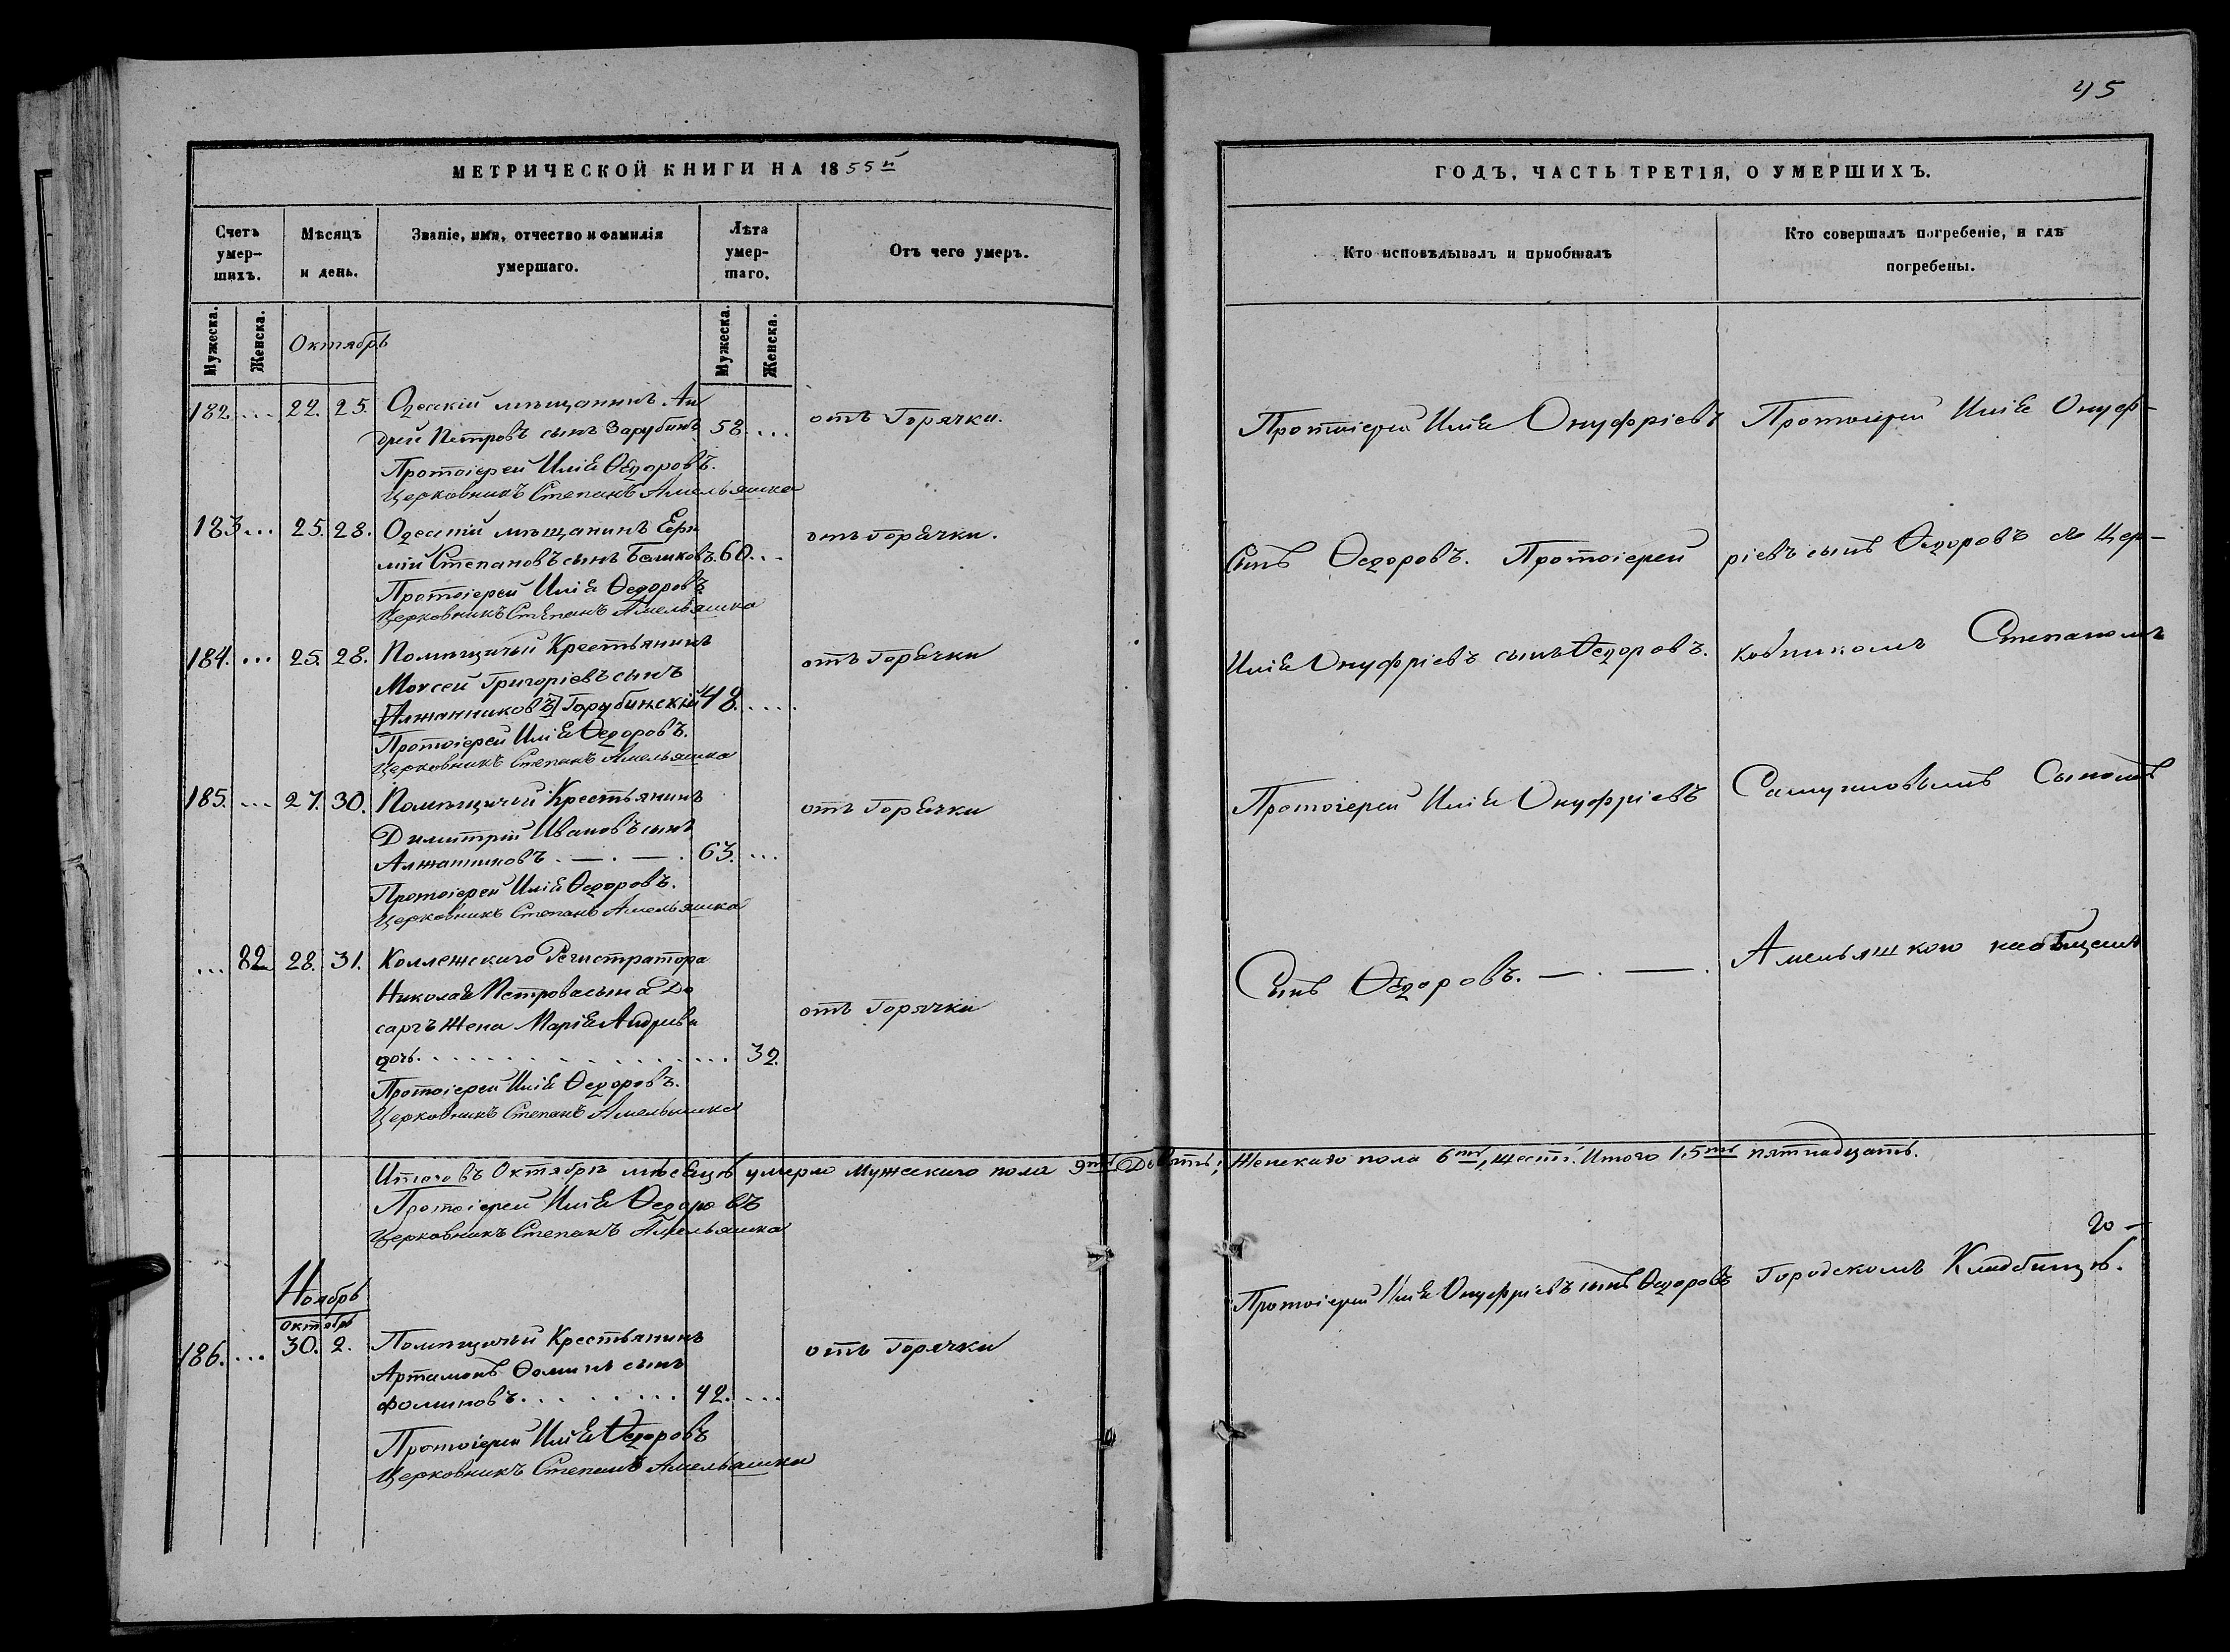 45
МЕТРИЧЕСКОЙ КНИГИ НА 1855й
ГОДЪ, ЧАСТЬ ТРЕТІЯ, О УМЕРШИХЪ.
Счетъ умер-шихъ.
Мѣсяцъ и день.
Званіе, имя, отчество и фамилія умершаго.
Лѣта умер-шаго.
Отъ чего умеръ.
Кто исповѣдывалъ и приобщалъ
Кто совершалъ погребеніе, и гдѣ погребены.
Мужеска.
Женска.
Октябрь
Мужеска.
Женска.
182. ... 22. 25. Одескій мѣщанинъ Ан
дрей Петровъ сынъ Зарубинъ 58. ... отъ Горячки.
Протоіерей Илія Ѳедоровъ.
Церковникъ Степанъ Амельяшка
183 ... 25. 28. Одескій мѣщанинъ Ерм
мій Степановъ сынъ Беликовъ. 60. .. отъ Горячки.
Протоіерей Илія Ѳедоровъ
Церковникъ Степанъ Амельяшка
184. ... 25. 28. Помѣщичій Крестьянинъ отъ Горячки
Моѵсей Григоріевъ сынъ
[Алжанниковъ] Горубинскій 48. ....
Протоіерей Илія Ѳедоровъ.
Церковникъ Степанъ Амельяшка
185. ... 27. 30. Помѣщичій Крестьянинъ отъ Горячки
Димитрій Ивановъ сынъ
Алжанниковъ . — . — . 63. ...
Протоіерей Илія Ѳедоровъ.
Церковникъ Степанъ Амельяшка
... 82 28. 31. Коллежскаго Регистратора
Николая Петрова сына До
саргъ Жена Марія Андрѣева отъ Горячки
дочь. ... 32.
Протоіерей Илія Ѳедоровъ.
Церковникъ Степанъ Амельяшка
Итого въ Октябрѣ мѣсяцѣ умерло Мужескаго пола 9ть Девять; Женскаго пола 6ть, шесть. Итого 15ть пятнадцать.
Протоіерей Илія Ѳедоровъ
Церковникъ Степанъ Амельяшка
Ноябрь
Октябрь
186. ... 30. 2. Помѣщичій Крестьянинъ отъ Горячки
Артамонъ Ѳоминъ сынъ
Фоминовъ. ... 42. ...
Протоіерей Илія Ѳедоровъ
Церковникъ Степанъ Амельяшка
Протоіерей Илія Онуфріевъ
Сынъ Ѳедоровъ. Протоіерей
Илія Онуфріевъ сынъ Ѳедоровъ.
Протоіерей Илія Онуфріевъ
Сынъ Ѳедоровъ. — . — .
Протоіерей Илія Онуфріевъ сынъ Ѳедоровъ
Протоіерей Илія Онуф-
ріевъ сынъ Ѳедоровъ съ Цер-
ковникомъ Степаномъ
Самуиловымъ Сыномъ
Амельяшкою на общемъ
го-
Городскомъ Кладбищѣ.